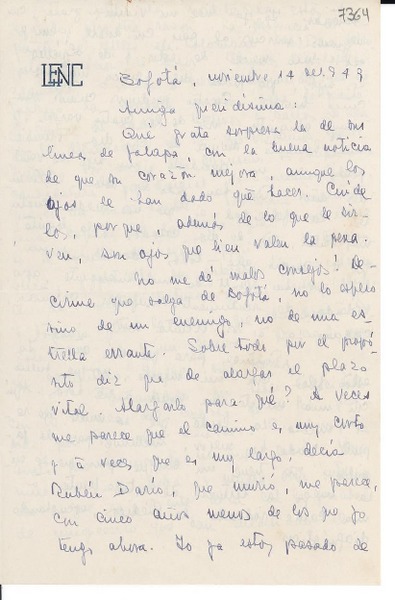 7364
LENC
Bogotá, noviembre 14 de 1949
Amiga queridísima:
Qué grata sorpresa la de sus
líneas de Jalapa, con la buena noticia
de que su corazón mejora, aunque los
ojos le han dado qué hacer. Cuíde-
los, porque, además de lo que le sir-
ven, son ojos que bien valen la pena.
No me dé malos consejos! De-
cirme que salga de Bogotá, no lo espero
sino de un enemigo, no de una es-
trella errante. Sobre todo por el propó-
sito diz que de alargar el plazo
vital. Alargarlo para qué? A veces
me parece que el camino es muy corto
y a veces que es muy largo, decía
Rubén Darío, que murió, me parece,
con cinco años menos de los que yo
tengo ahora. Yo ya estoy pasado de